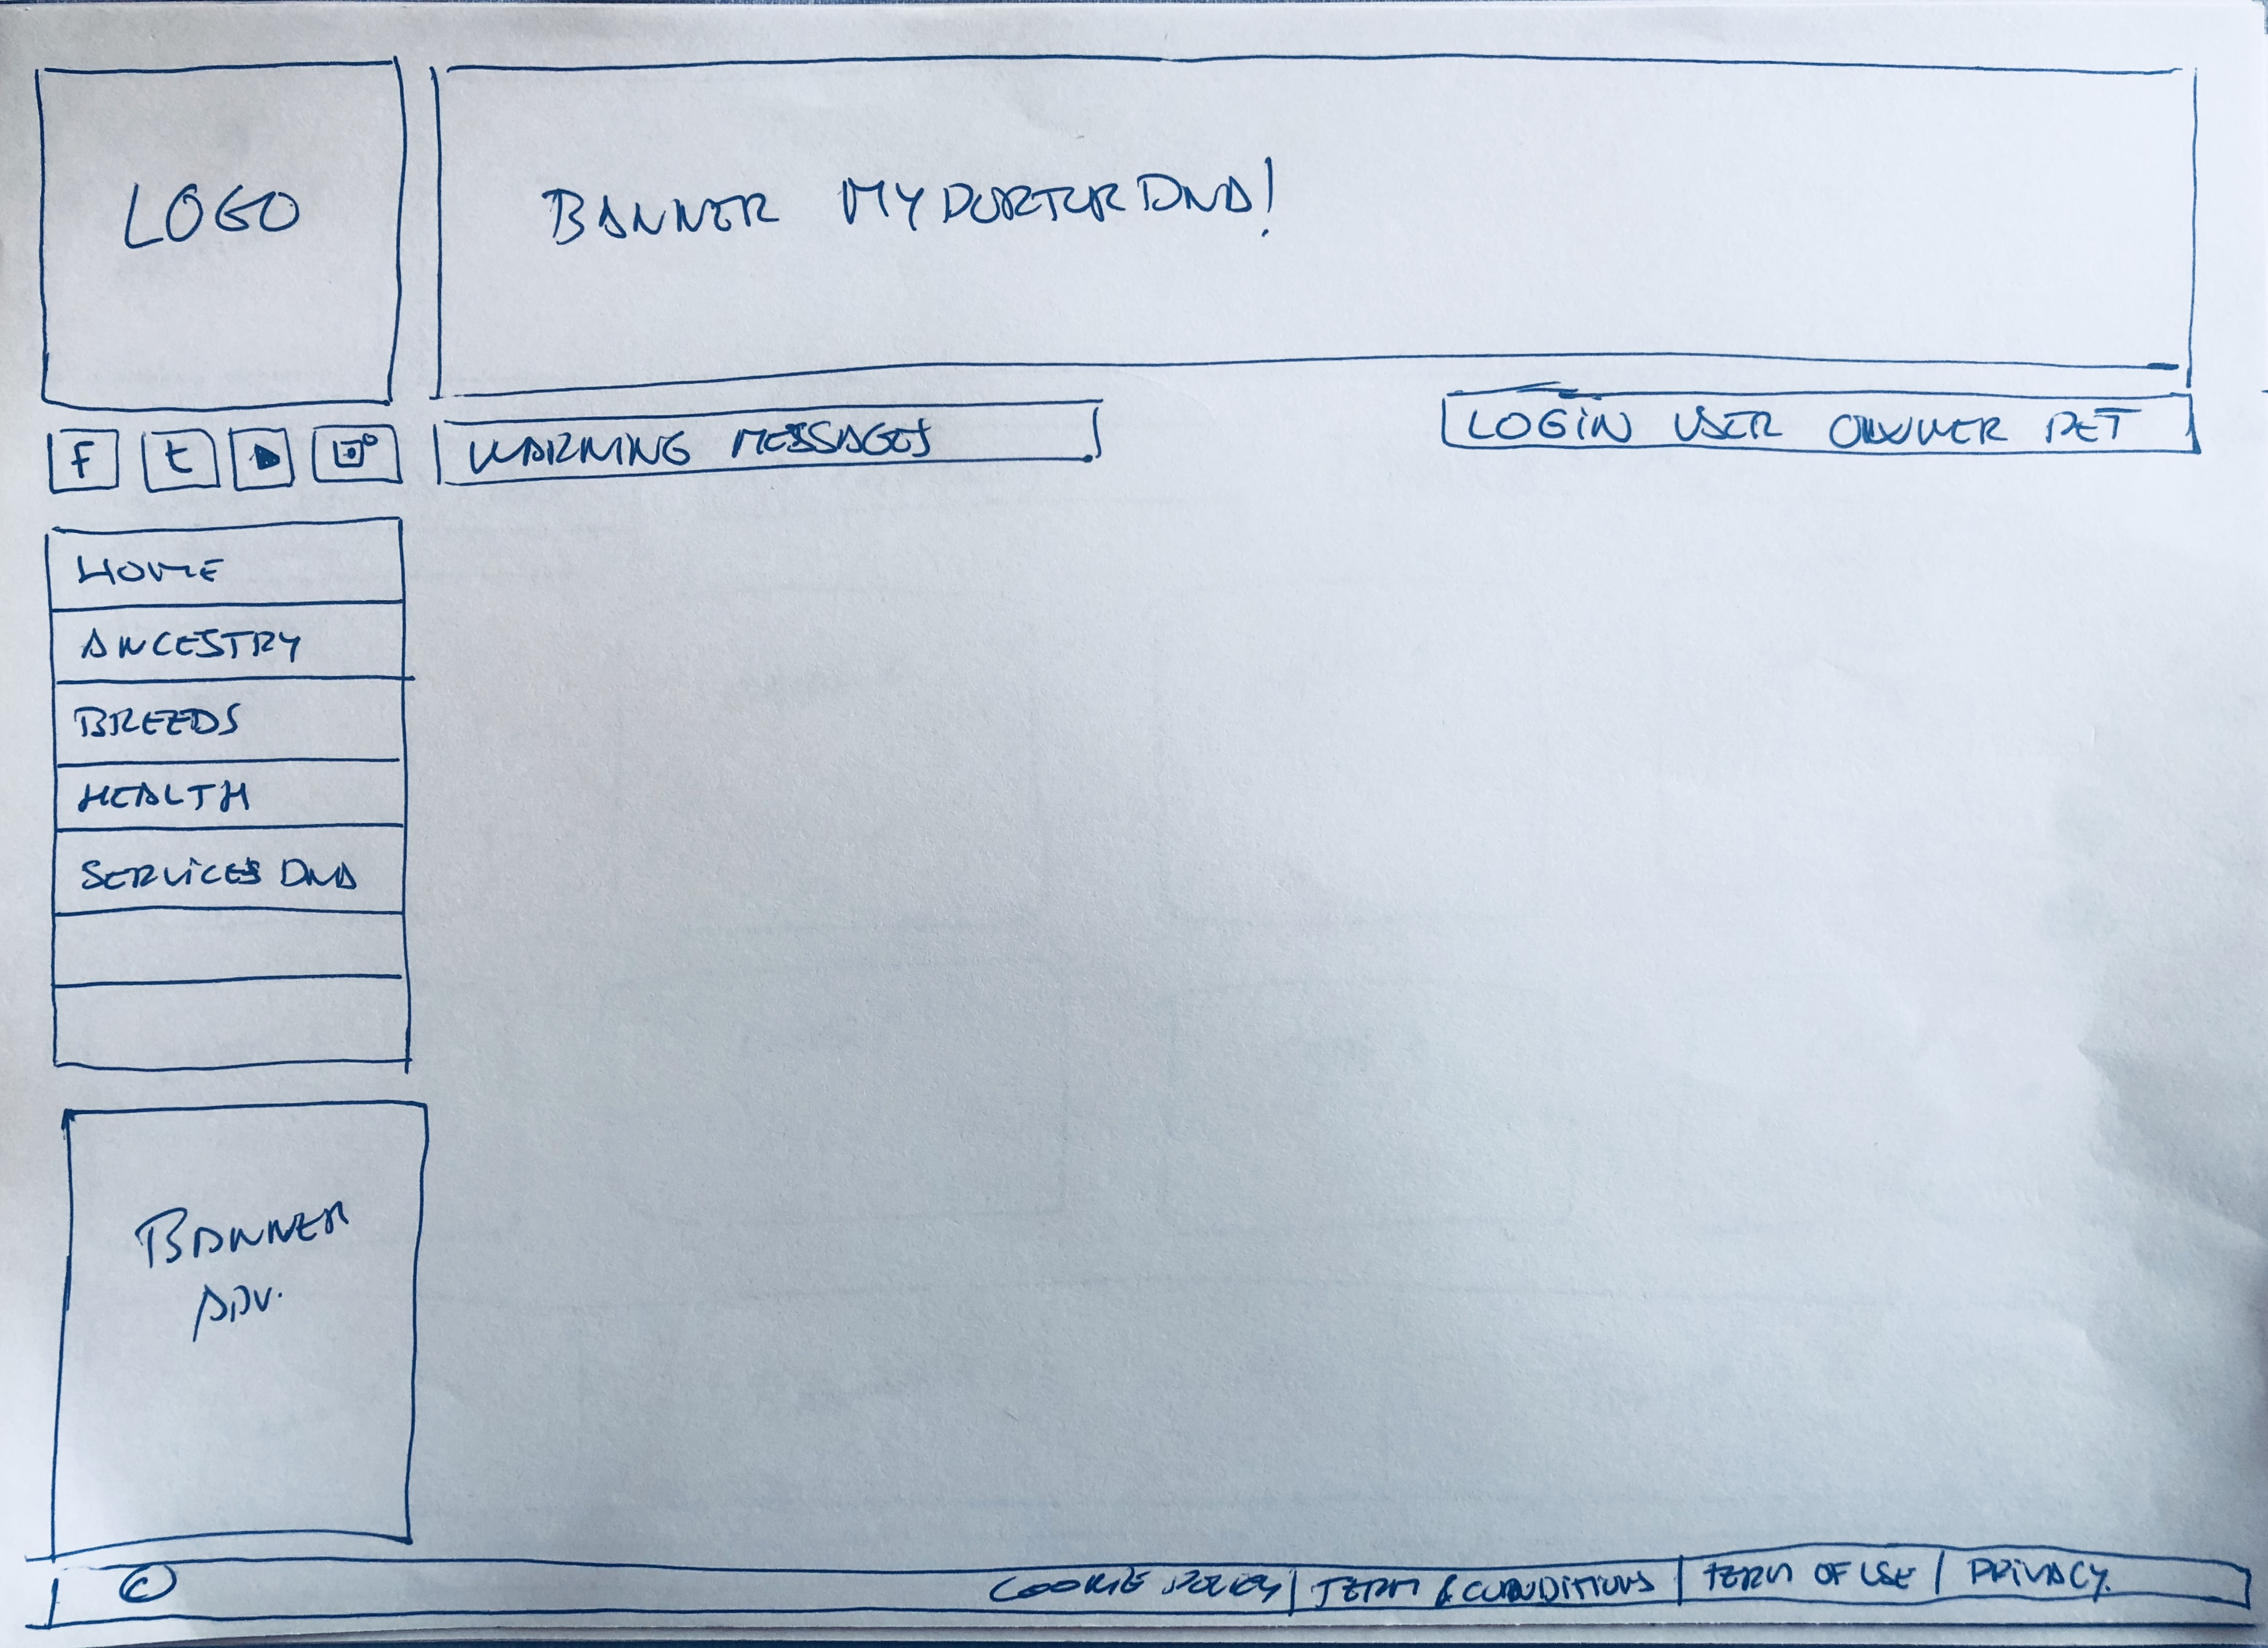 LOGO
BANNER MYDOKTORDNA!
f t
WARNING MESSAGES
LOGIN USER OWNER PET
HOME
ANCESTRY
BREEDS
HEALTH
SERVICES DNA
BANNER
ADV.
© COOKIE POLICY | TERM & CONDITIONS | TERM OF USE | PRIVACY.